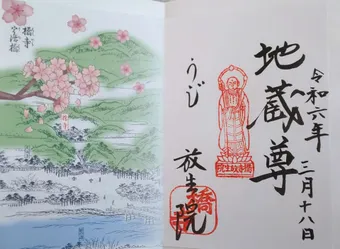 令和六年
三月十八日
地蔵尊
うじ
放生院
橋寺
宇治橋